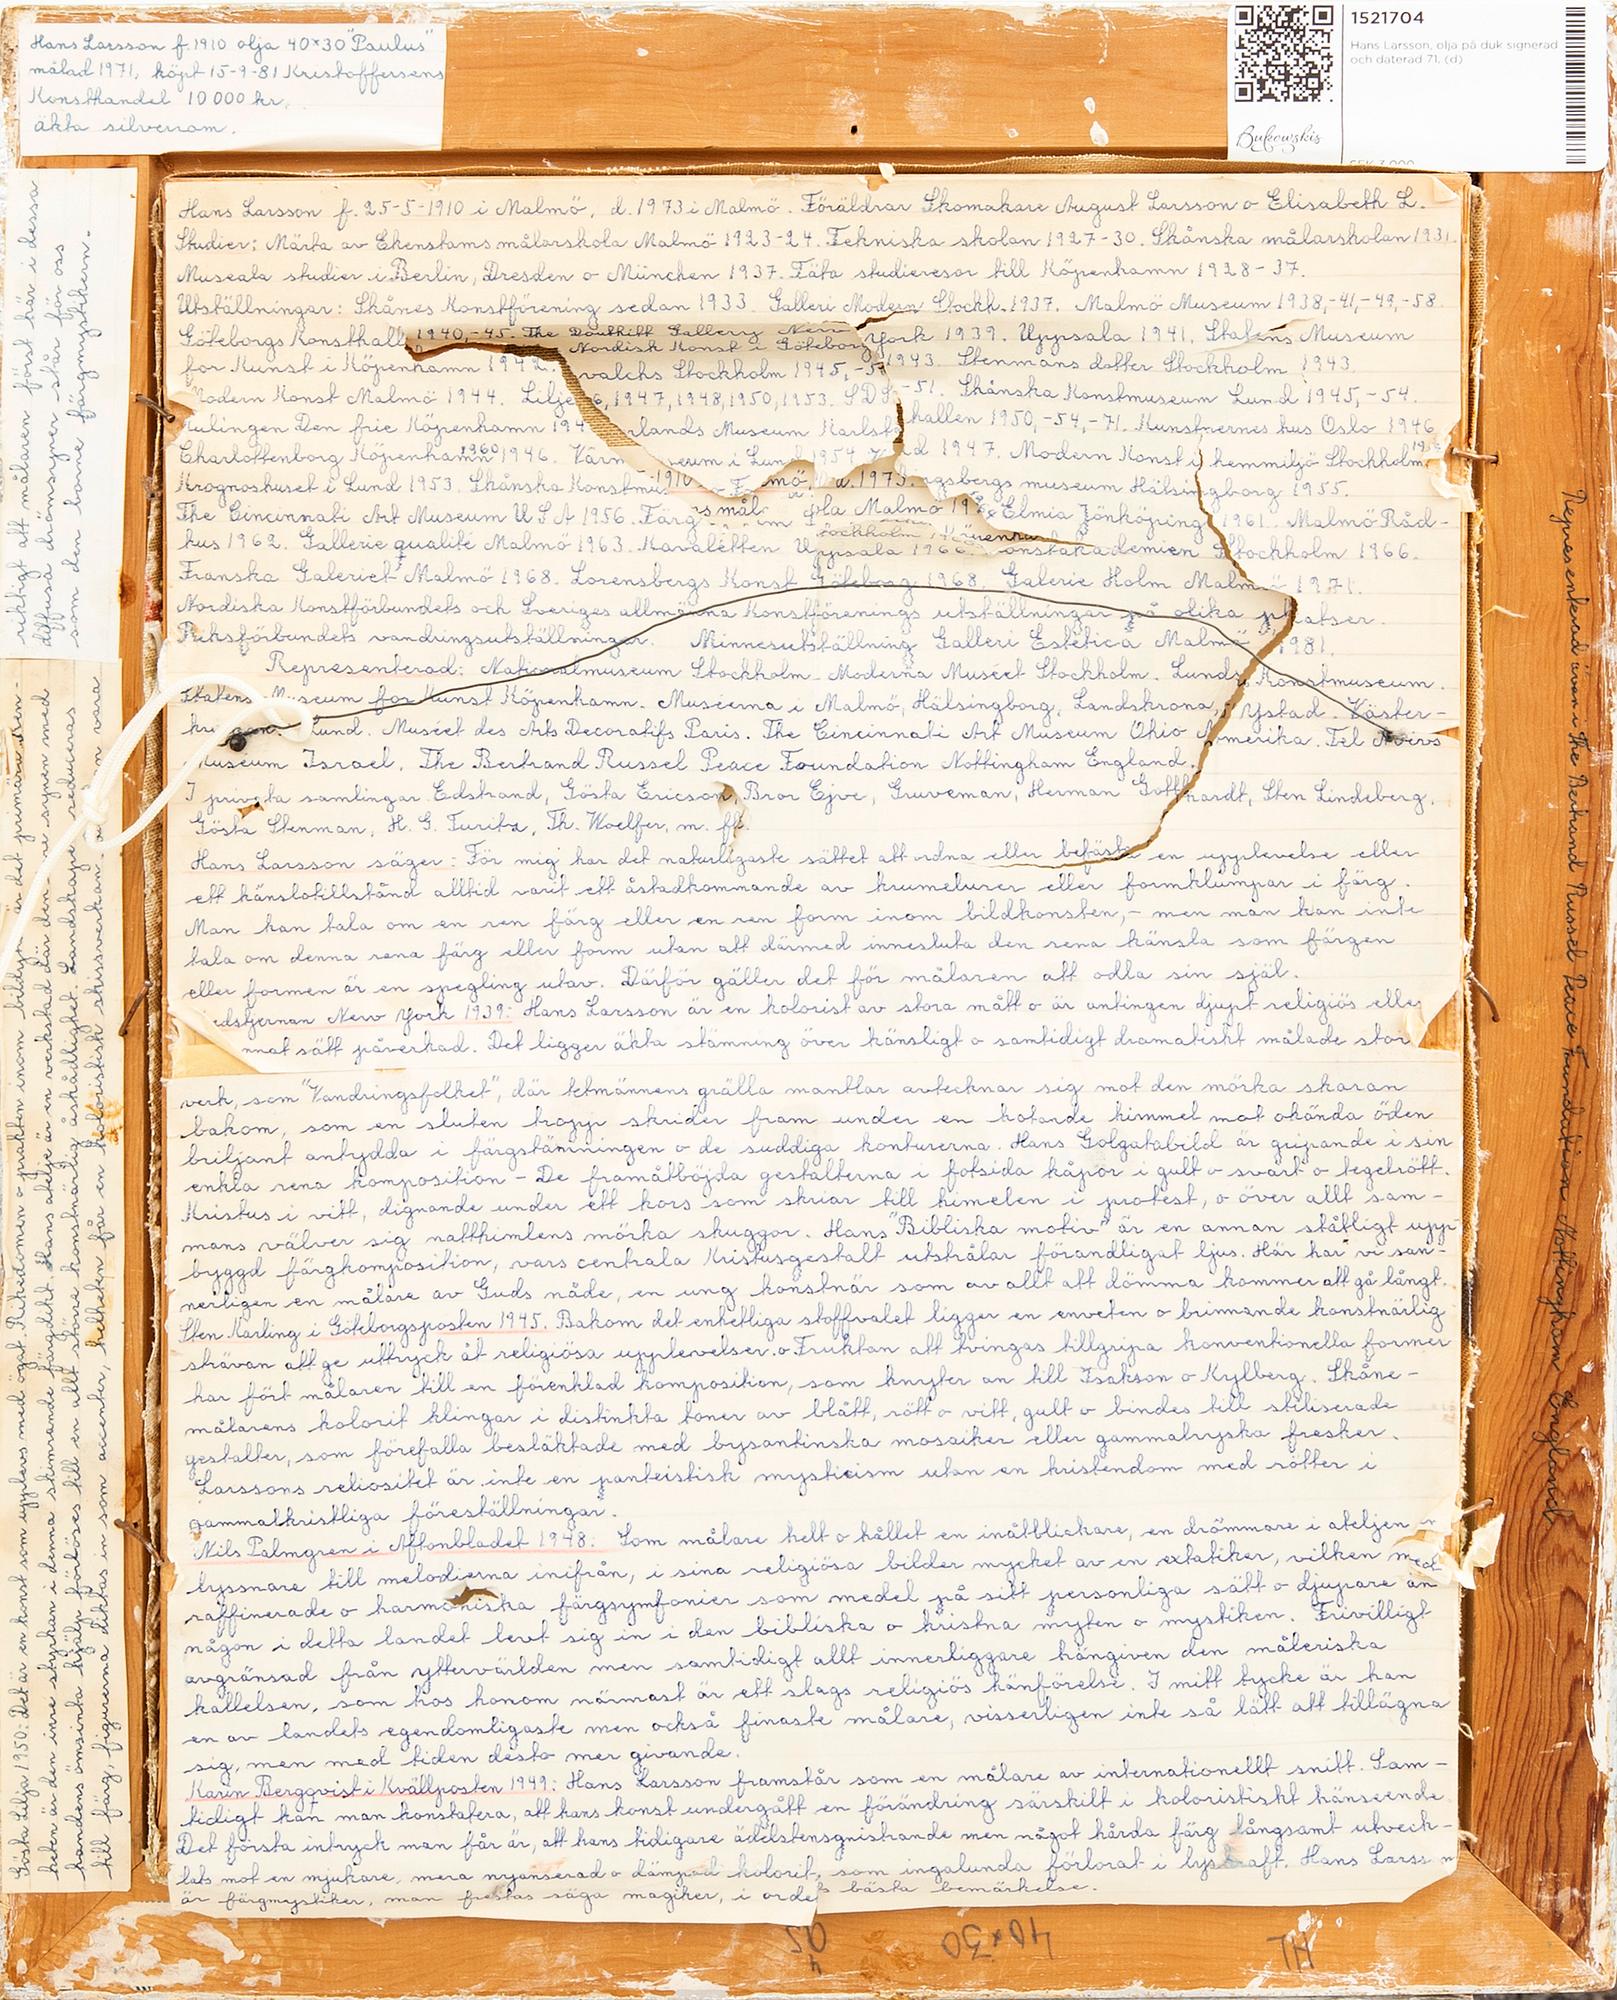 Hans Larsson f. 1910 olja 40×30 "Paulus"
målad 1971, köpt 15-9-81 Kristoffersens
Konsthandel 10 000 kr.
äkta silverram.
1521704
Hans Larsson, olja på duk signerad
och daterad 71. (d)
Bukowskis
Hans Larsson f. 25-5-1910 i Malmö, d. 1973 i Malmö. Föräldrar Skomakare August Larsson o Elisabeth L.
Studier: Märta av Ekenstams målarskola Malmö 1923-24. Tekniska skolan 1927-30. Skånska målarskolan 1931.
Museala studier i Berlin, Dresden o München 1937. Täta studieresor till Köpenhamn 1928-37.
Utställningar: Skånes Konstförening sedan 1933. Galleri Modern Stockh. 1937. Malmö Museum 1938,-41,-49,-58.
Göteborgs Konsthall 1940,-45. The Douthitt Gallery New York 1939. Uppsala 1941. Statens Museum
for Kunst i Köpenhamn 1942. Nordisk Konst i Göteborg 1943. Stenmans dotter Stockholm 1943.
Modern Konst Malmö 1944. Lilje valchs Stockholm 1945,-5 -51. Skånska Konstmuseum Lund 1945,-54.
6, 1947, 1948, 1950, 1953. SDS hallen 1950,-54,-71. Kunstnernes hus Oslo 1946
Den frie Köpenhamn 194 rlands Museum Karlst d 1947. Modern Konst i hemmiljö Stockholm
Charlottenborg Köpenhamn 1946. 1960 Värm eum i Lund 1954
Krognoshuset i Lund 1953. Skånska Konstmu 1910 mö, d. 1973. ngsbergs museum Hälsingborg 1955.
The Cincinnati Art Museum U S A 1956. Färg smål la Malmö 19 Elmia Jönköping 1961. Malmö Råd-
hus 1962. Gallerie qualité Malmö 1963. Kavaletten Uppsala 1966. onstakademien Stockholm 1966.
Franska Galeriet Malmö 1968. Lorensbergs Konst Göteborg 1968. Galerie Holm Malmö 1971.
Nordiska Konstförbundets och Sveriges allmänna Konstförenings utställningar på olika platser.
Riksförbundets vandringsutställningar. Minnesutställning Galleri Estetica Malmö 1981.
Representerad: Nationalmuseum Stockholm. Moderna Muséet Stockholm. Lunds Konstmuseum.
Statens Museum for Kunst Köpenhamn. Muséerna i Malmö, Hälsingborg, Landskrona, Ystad. Väster-
Lund. Muséet des Arts Decoratifs Paris. The Cincinnati Art Museum Ohio Amerika. Tel Avivs
Museum Israel. The Bertrand Russel Peace Foundation Nottingham England.
I privata samlingar Edstrand, Gösta Ericson, Bror Ejve, Gruveman, Herman Gotthardt, Sten Lindeberg,
Gösta Stenman, H. G. Turitz, Th. Woelfer, m. fl.
Hans Larsson säger: För mig har det naturligaste sättet att ordna eller befästa en upplevelse eller
ett känslotillstånd alltid varit ett åstadkommande av krumelurer eller formklumpar i färg.
Man kan tala om en ren färg eller en ren form inom bildkonsten,- men man kan inte
tala om denna rena färg eller form utan att därmed innesluta den rena känsla som färgen
eller formen är en spegling utav. Därför gäller det för målaren att odla sin själ.
edstjernan New York 1939: Hans Larsson är en kolorist av stora mått o är antingen djupt religiös eller
nat sätt påverkad. Det ligger äkta stämning över känsligt o samtidigt dramatiskt målade stor
verk, som "Vandringsfolket", där tetmännens grälla mantlar avtecknar sig mot den mörka skaran
bakom, som en sluten tropp skrider fram under en hotande himmel mot okända öden
briljant antydda i färgstämningen o de suddiga konturerna. Hans Golgatabild är gripande i sin
enkla rena komposition - De framåtböjda gestalterna i fotsida kåpor i gult o svart o tegelrött.
Kristus i vitt, dignande under ett kors som skriar till himelen i protest, o över allt sam-
mans välver sig natthimlens mörka skuggor. Hans "Bibliska motiv" är en annan ståtligt upp-
byggd färgkomposition, vars centrala Kristusgestalt utstrålar förandligat ljus. Här har vi san-
nerligen en målare av Guds nåde, en ung konstnär som av allt att dömma kommer att gå långt.
Sten Karling i Göteborgsposten 1945. Bakom det enhetliga stoffvalet ligger en enveten o brinnande konstnärlig
strävan att ge uttryck åt religiösa upplevelser. o Fruktan att tvingas tillgripa konventionella former
har fört målaren till en förenklad komposition, som knyter an till Isakson o Kylberg. Skåne-
målarens kolorit klingar i distinkta toner av blått, rött o vitt, gult o bindes till stiliserade
gestalter, som förefalla besläktade med bysantinska mosaiker eller gammalryska fresker.
Larssons reliositet är inte en panteistisk mysticism utan en kristendom med rötter i
gammalkristliga föreställningar.
Nils Palmgren i Aftonbladet 1948: Som målare helt o hållet en inåtblickare, en drömmare i ateljen
lyssnare till melodierna inifrån, i sina religiösa bilder mycket av en extatiker, vilken med
raffinerade o harmoniska färgsymfonier som medel på sitt personliga sätt o djupare än
någon i detta landet levt sig in i den bibliska o kristna myten o mystiken. Frivilligt
avgränsad från yttervärlden men samtidigt allt innerliggare hängiven den måleriska
kallelsen, som hos honom närmast är ett slags religiös hänförelse. I mitt tycke är han
en av landets egendomligaste men också finaste målare, visserligen inte så lätt att tillägna
sig, men med tiden desto mer givande.
Karin Bergqvist i Kvällposten 1949: Hans Larsson framstår som en målare av internationellt snitt. Sam-
tidigt kan man konstatera, att hans konst undergått en förändring särskilt i koloristiskt hänseende.
Det första intryck man får är, att hans tidigare ädelstensgnistrande men något hårda färg långsamt utveck-
lats mot en mjukare, mera nyanserad o dämpad kolorit, som ingalunda förlorat i lyskraft. Hans Larsson
är färgmystiker, man frestas säga magiker, i ordets bästa bemärkelse.
Gösta Lilja 1950: Det är en konst som upplevs med ögat. Rikedomen o prakten inom bildytan är det primära. Den-
heter är den inre styrkan i denna skimrande färgdikt. Hans ateljé är en verkstad där den re synen med
handens ömsinta hjälp förlöses till en allt större konstnärlig åskådlighet. Landskapet reduceras
till färg, figurerna diktas in som accenter, helheten får en koloristisk skissverkan. n vara
riktigt att målaren först här i dessa
diffusa drömsyner står för oss
som den borne färgmystikern.
Representerad även i The Bertrand Russel Peace Foundation Nottingham England
HL
40×30